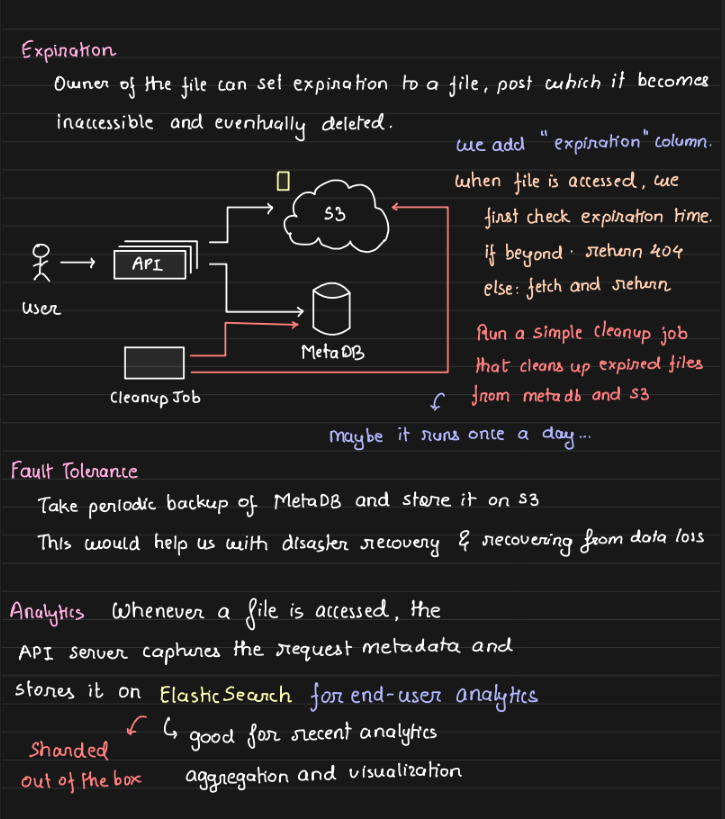 Expiration
Owner of the file can set expiration to a file, post which it becomes
inaccessible and eventually deleted.
we add "expiration" column.
when file is accessed, we
first check expiration time.
if beyond · return 404
else: fetch and return
S3
API
User
MetaDB
Cleanup Job
Run a simple cleanup job
that cleans up expired files
from metadb and S3
maybe it runs once a day...
Fault Tolerance
Take periodic backup of MetaDB and store it on S3
This would help us with disaster recovery & recovering from data loss
Analytics Whenever a file is accessed, the
API server captures the request metadata and
stores it on ElasticSearch for end-user analytics
good for recent analytics
aggregation and visualization
Sharded
out of the box